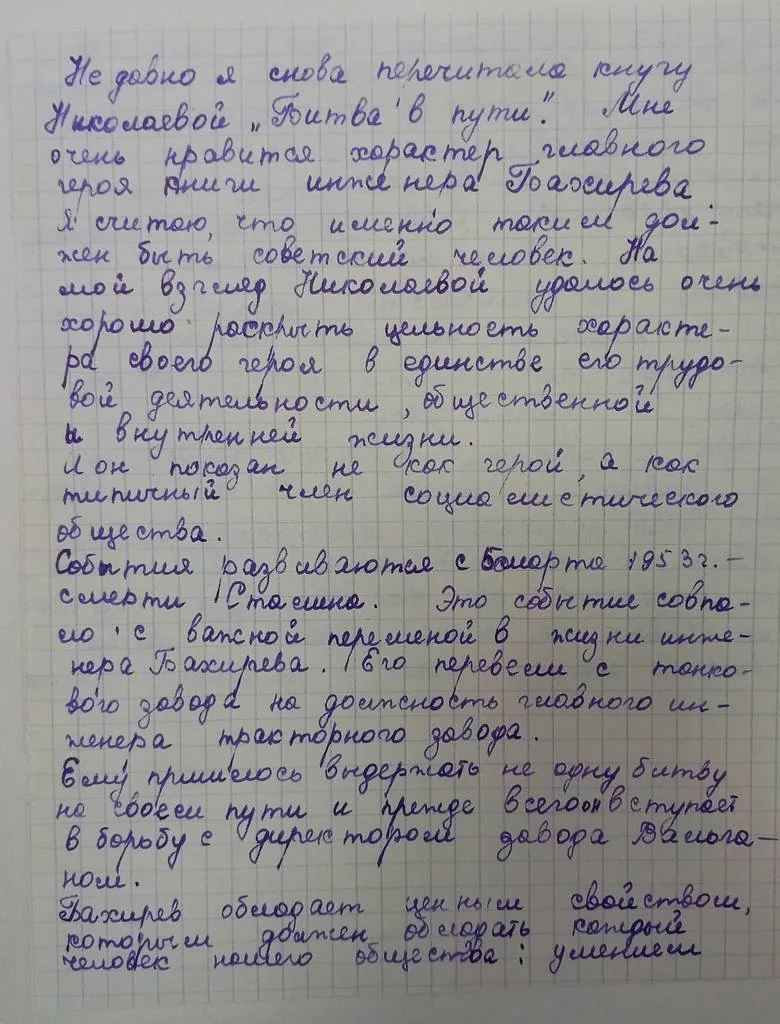 Не давно я снова перечитала книгу
Николаевой „Битва в пути". Мне
очень нравится характер главного
героя книги инженера Бахирева.
Я считаю, что именно таким дол-
жен быть советский человек. На
мой взгляд Николаевой удалось очень
хорошо раскрыть цельность характе-
ра своего героя в единстве его трудо-
вой деятельности, общественной
и внутренней жизни.
И он показан не как герой, а как
типичный член социалистического
общества.
События развиваются с 5 марта 1953 г. -
смерти Сталина. Это событие совпа-
ло с важной переменой в жизни инже-
нера Бахирева. Его перевели с танко-
вого завода на должность главного ин-
женера тракторного завода.
Ему пришлось выдержать не одну битву
на своем пути и прежде всего он вступает
в борьбу с директором завода Вальга-
ном.
Бахирев обладает ценным свойством,
которым должен обладать каждый
человек нашего общества: умением